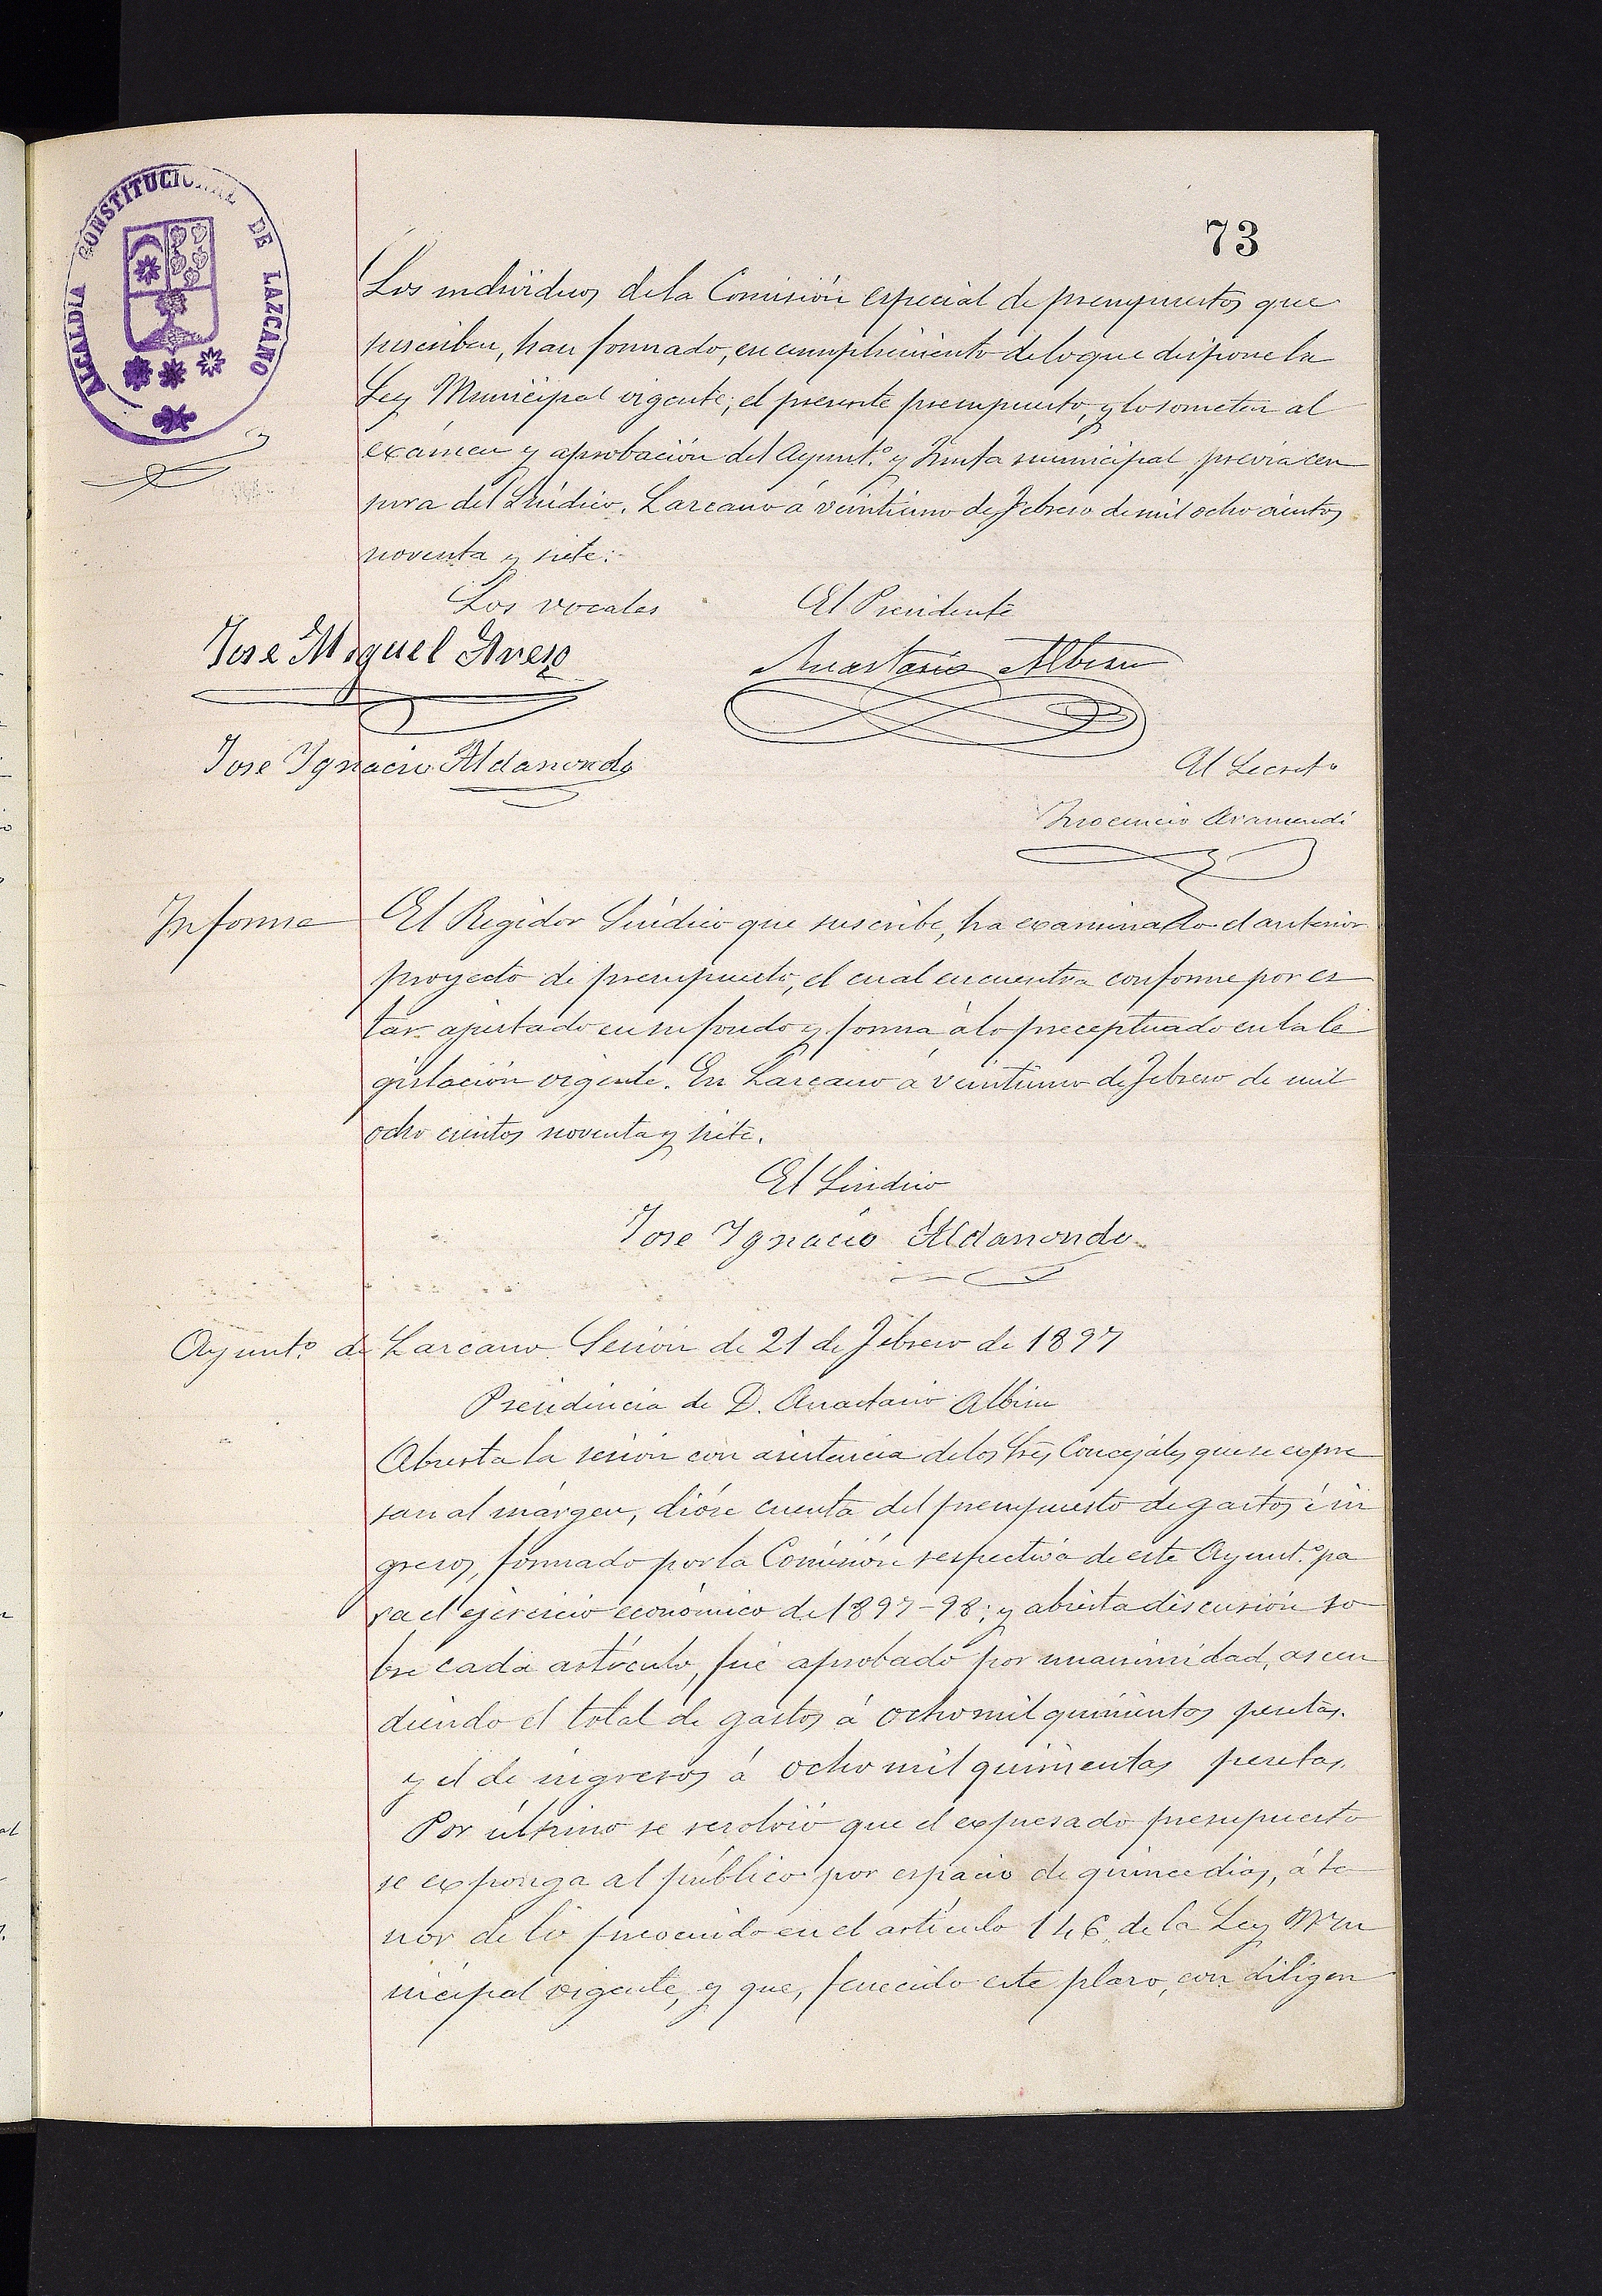 ALCALDIA CONSTITUCIONAL DE LAZCANO
73
Los individuos de la Comisión especial de presupuestos que
suscriben, han formado, en cumplimiento de lo que dispone la
Ley Municipal vigente, el presente presupuesto, y lo someten al
exámen y aprobación del Ayunt.º y Junta municipal previa cen
sura del Síndico. Lazcano á veintiuno de Febrero de mil ocho cientos
noventa y siete.
Los vocales El Presidente
Jose Miguel Anastasio Albisu
Jose Ignacio Aldanondo
El Secret.º
Inocencio Aramendi
Informe
El Regidor Síndico que suscribe, ha examinado el anterior
proyecto de presupuesto, el cual encuentra conforme por es
tar ajustado en su fondo y forma á lo preceptuado en la le
gislación vigente. En Lazcano á veintiuno de Febrero de mil
ocho cientos noventa y siete.
El Sindico
Jose Ignacio Aldanondo
Ayunt.º de Lazcano Sesión de 21 de Febrero de 1897
Presidencia de D. Anastasio Albisu
Abierta la sesión con asistencia de los Sres Concejales que se expre
san al márgen, dióse cuenta del presupuesto de gastos é in
gresos, formado por la Comisión respectiva de este Ayunt.º pa
ra el ejercicio económico de 1897-98; y abierta discusión so
bre cada artículo, fué aprobado por unanimidad, ascen
diendo el total de gastos á ocho mil quinientos pesetas.
y el de ingresos á ocho mil quinientas pesetas.
Por último se resolvió que el expresado presupuesto
se exponga al público por espacio de quince dias, á te
nor de lo prevenido en el artículo 146 de la Ley Mu
nicipal vigente, y que, fenecido este plazo, con diligen